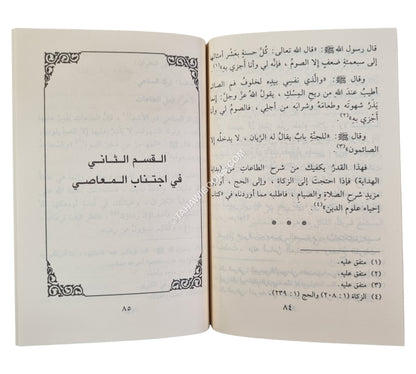 قال رسول الله ﷺ: «قال الله تعالى: كُلُّ حسنةٍ بعَشْر أمثالها
إلى سبعمئةِ ضعفٍ إلا الصومُ، فإنَّه لي وأنا أَجزي بهِ»(١)
وقال ﷺ: «والَّذي نفسِي بيدِه لخلوف فم الصائم
أطيبُ عندَ الله من ريحِ المِسْك، يقولُ اللهُ عزَّ وجلَّ: إنما
يَذَرُ شهوتَه وطعامَهُ وشرابَه من أجلِي، فالصومُ لي وأنا
أَجزي بِهِ»(٢)
وقال ﷺ: «للجنَّةِ بابٌ يقالُ له الرَّيان، لا يدخلُه إلا
الصائمون»(٣)
فهذا القَدرُ يكفيكَ من شرحِ الطاعاتِ من (بداية
الهداية) فإذا احتجتَ إلى الزكاةِ، وإلى الحج، أو إلى
مزيدِ شرحِ الصَّلاة والصيام، فاطلبه مما أوردناه في «كتاب
إحياء علوم الدين»(٤)
(١) متفق عليه.
(٢) متفق عليه.
(٣) متفق عليه.
(٤) الزكاة (١: ٢٠٨) والحج (١: ٢٣٩)
٨٤
القسم الثاني
في اجتناب المعاصي
٨٥